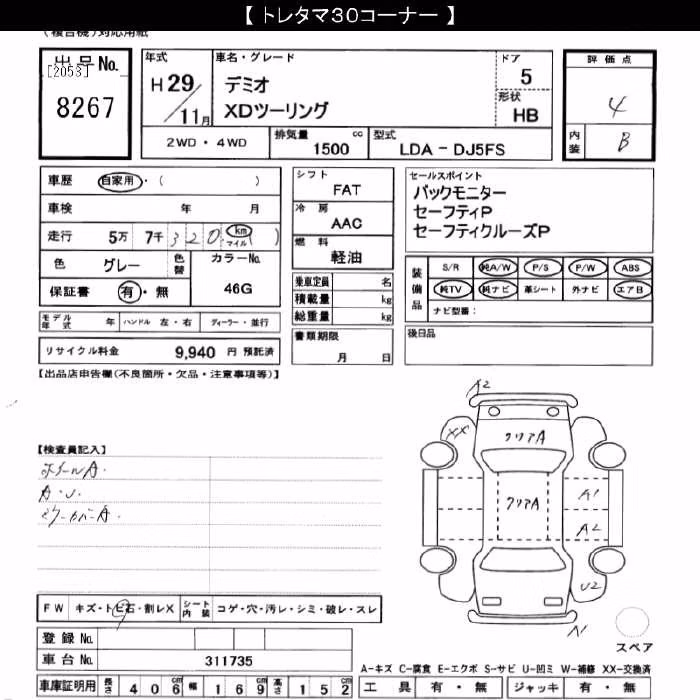 【 トレタマ30コーナー 】
(複合機)対応用紙
出品No.
[2053]
8267
年式
H 29/11月
車名・グレード
デミオ
XDツーリング
ドア
5
形状
HB
評価点
4
内装
B
2WD・4WD
排気量
1500 cc
型式
LDA - DJ5FS
車歴 自家用・( )
車検 年 月
走行 5万 7千 320 km マイル ( )
色 グレー 色替
カラーNo.
46G
保証書 有・無
モデル年式 年 ハンドル 左・右 ディーラー・並行
リサイクル料金 9,940 円 預託済
シフト
FAT
冷房
AAC
燃料
軽油
乗車定員 名
積載量 kg
総重量 kg
書類期限
月 日
セールスポイント
バックモニター
セーフティP
セーフティクルーズP
装備品
S/R 純A/W P/S P/W ABS
純TV 純ナビ 革シート 外ナビ エアB
ナビ型番:
後日品
【出品店申告欄(不良箇所・欠品・注意事項等)】
【検査員記入】
ホイールA.
A・U.
ミラーカバーA.
A2
XX
クリアA
クリアA
A1
A2
U2
A1
スペア
FW キズ・トビ石・割レX シート内装 コゲ・穴・汚レ・シミ・破レ・スレ
登録 No.
車台 No. 311735
車庫証明用 長さ 406 cm 幅 169 cm 高さ 152 cm
A-キズ C-腐食 E-エクボ S-サビ U-凹ミ W-補修 XX-交換済
工具 有・無 ジャッキ 有・無